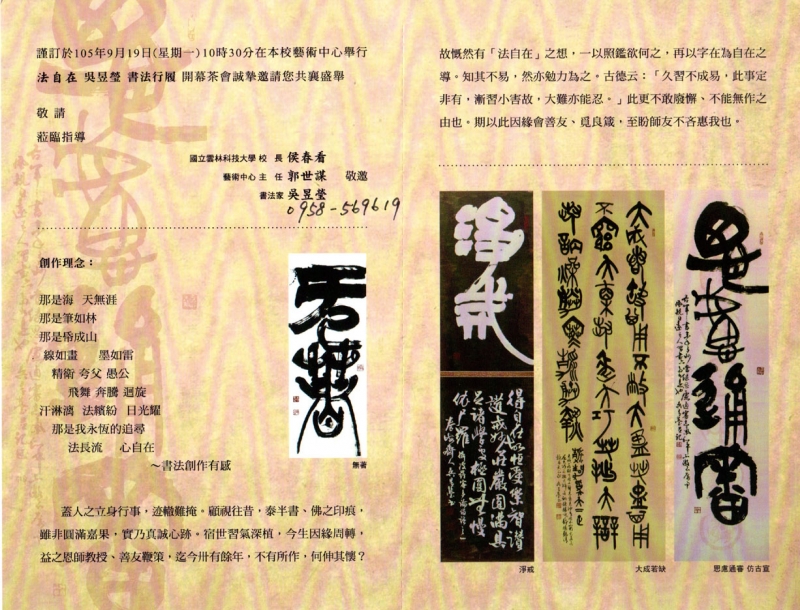 謹訂於105年9月19日(星期一)10時30分在本校藝術中心舉行
法自在 吳昱瑩 書法行履 開幕茶會誠摯邀請您共襄盛舉
敬 請
蒞臨指導
國立雲林科技大學 校 長 侯春看
藝術中心 主 任 郭世謀 敬邀
書法家 吳昱瑩
0958-569619
創作理念：
那是海 天無涯
那是筆如林
那是帋成山
線如畫 墨如雷
精衛 夸父 愚公
飛舞 奔騰 迴旋
汗淋漓 法繽紛 日光耀
那是我永恆的追尋
法長流 心自在
～書法創作有感
無著
無著
蓋人之立身行事，迹轍難掩。顧視往昔，泰半書、佛之印痕，
雖非圓滿嘉果，實乃真誠心跡。宿世習氣深植，今生因緣周轉，
益之恩師教授、善友鞭策，迄今卅有餘年，不有所作，何伸其懷？
故慨然有「法自在」之想，一以照鑑欲何之，再以字在為自在之
導。知其不易，然亦勉力為之。古德云：「久習不成易，此事定
非有，漸習小害故，大難亦能忍。」此更不敢廢懈、不能無作之
由也。期以此因緣會善友、覓良箴，至盼師友不吝惠我也。
淨戒
得自在如極愛樂智諳
道戒妙莊嚴圓滿具
足諸學處極圓無慢
依尸羅
淨戒
大成若缺其用不敝大盈若盅其用
不窮大直若屈大巧若拙大辯
若訥躁勝寒靜勝熱
大成若缺
思慮通審
思慮通審 仿古宣